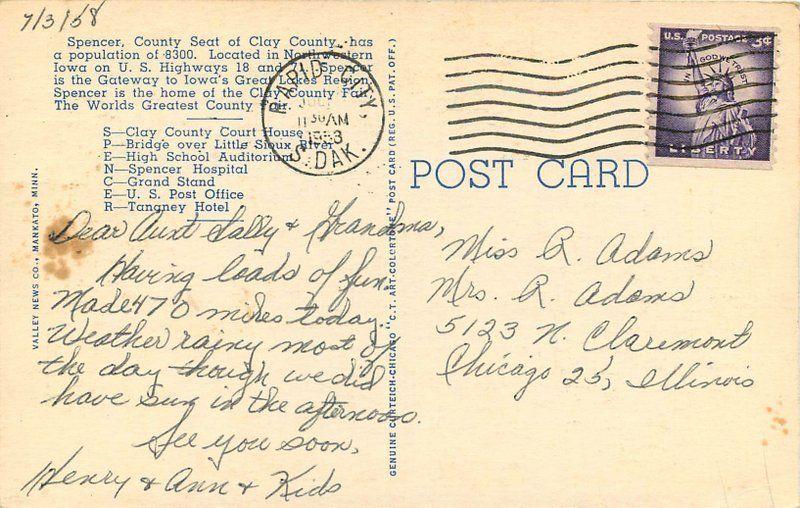 7/3/58
Spencer, County Seat of Clay County, has
a population of 8300. Located in Northwestern
Iowa on U. S. Highways 18 and Spencer
is the Gateway to Iowa's Great Lakes Reg
Spencer is the home of the Clay County Fair
The Worlds Greatest County Fair.
S—Clay County Court House
P—Bridge over Little Sioux River
E—High School Auditorium
N—Spencer Hospital
C—Grand Stand
E—U. S. Post Office
R—Tangney Hotel
RAPID CITY,
JUL
11 30 AM
1958
S. DAK.
U.S. POSTAGE 3¢
IN GOD WE TRUST
LIBERTY
POST CARD
VALLEY NEWS CO., MANKATO, MINN.
GENUINE CURTEICH-CHICAGO "C.T. ART-COLORTONE" POST CARD (REG. U.S. PAT. OFF.)
Dear Aunt Sally & Grandma,
Having loads of fun.
Made 470 miles today.
Weather rainy most of
the day though we did
have sun in the afternoon.
See you soon,
Henry & Ann & Kids
Miss R. Adams
Mrs. R. Adams
5123 N. Claremont
Chicago 25, Illinois